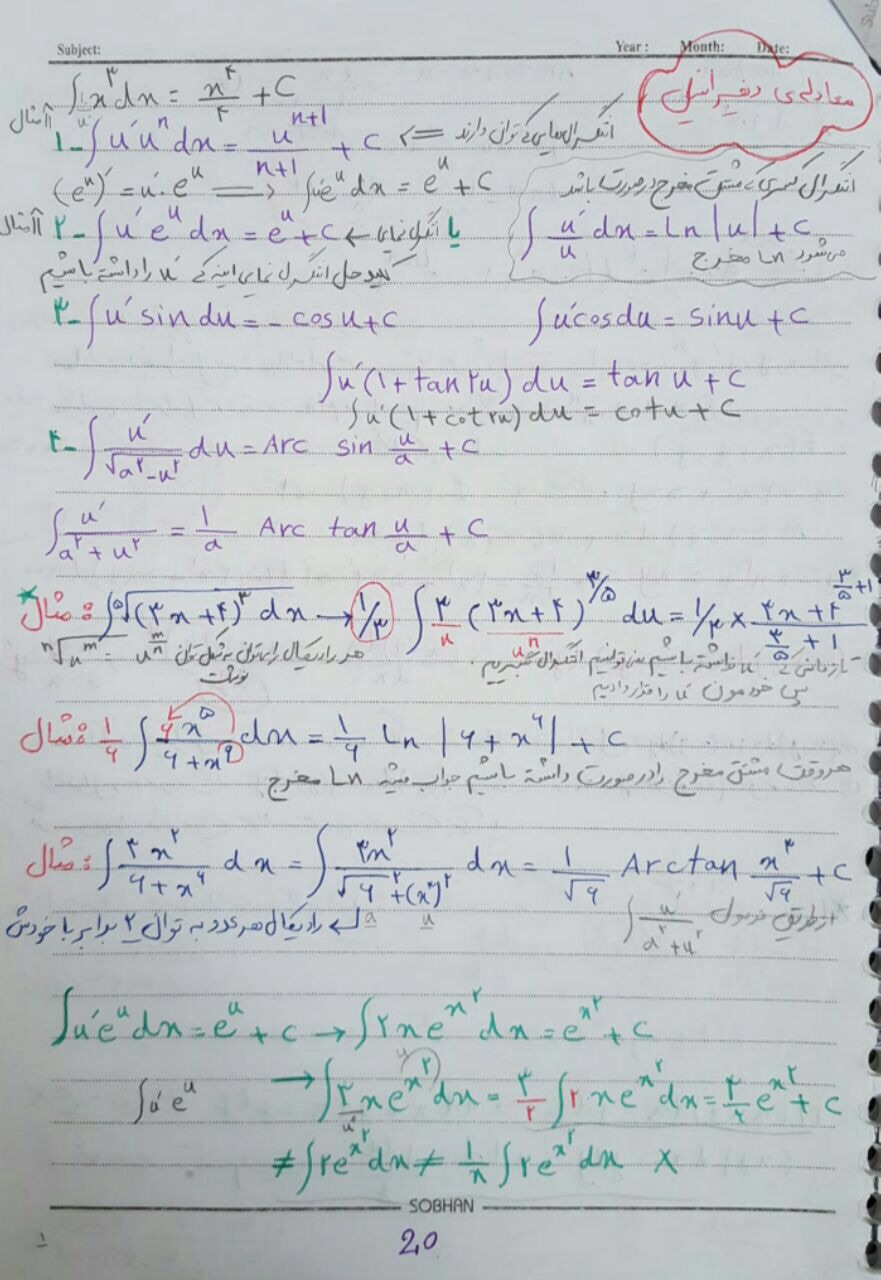 Subject: Year: Month: Date:
معادله‌ی دیفرانسیل
∫x^۳ dx = x^۴/۴ + C
۱- ∫u′u^n dx = u^(n+1)/(n+1) + C <= انتگرال‌هایی که توان دارند
(e^u)′ = u′·e^u => ∫u′e^u dx = e^u + C
انتگرال کسری که مشتق مخرج در صورت باشد
۲- ∫u′e^u dx = e^u + C ← انتگرال نمایی یا ∫u′/u dx = Ln|u| + C
می‌شود Ln مخرج
کلید حل انتگرال نمایی اینه که u′ را داشته باشیم
۳- ∫u′ sin du = - cosu + C ∫u′cosdu = sinu + C
∫u′(1 + tan۲u) du = tan u + C
∫u′(1 + cot۲u) du = cotu + C
۴- ∫u′/√(a^۲-u^۲) du = Arc sin u/a + C
∫u′/(a^۲+u^۲) = 1/a Arc tan u/a + C
مثال: ∫ ⁵√(۳x+۴)^۳ dx → 1/۳ ∫ ۳ (۳x+۴)^(۳/۵) du = 1/۳ × ۳x+۴^(۳/۵+1) / (۳/۵+1)
u′ u^n
n√u^m = u^(m/n) هر رادیکال را میتوان به شکل توان نوشت
تا زمانی که u′ نداشته باشیم نمی‌توانیم انتگرال بگیریم.
پس خودمون u′ را قرار دادیم
مثال: 1/۶ ∫ ۶x^۵/(۶+x^۶) dx = 1/۶ Ln |۶+x^۶| + C
هر وقت مشتق مخرج را در صورت داشته باشیم جواب میشه Ln مخرج
مثال: ∫ ۳x^۲/(۶+x^۶) dx = ∫ ۳x^۲/(√۶^۲+(x^۳)^۲) dx = 1/√۶ Arctan x^۳/√۶ + C
a u
رادیکال هر عدد به توان ۲ برابر با خودش
از طریق فرمول ∫ u′/(a^۲+u^۲)
∫u′e^u dx = e^u + C → ∫۲xe^(x^۲) dx = e^(x^۲) + C
∫u′e^u → ∫۳xe^(x^۲) dx = ۳/۲ ∫۲xe^(x^۲) dx = ۳/۲ e^(x^۲) + C
≠ ∫۲e^(x^۲) dx ≠ 1/x ∫۲e^(x^۲) dx ×
SOBHAN
۱
20